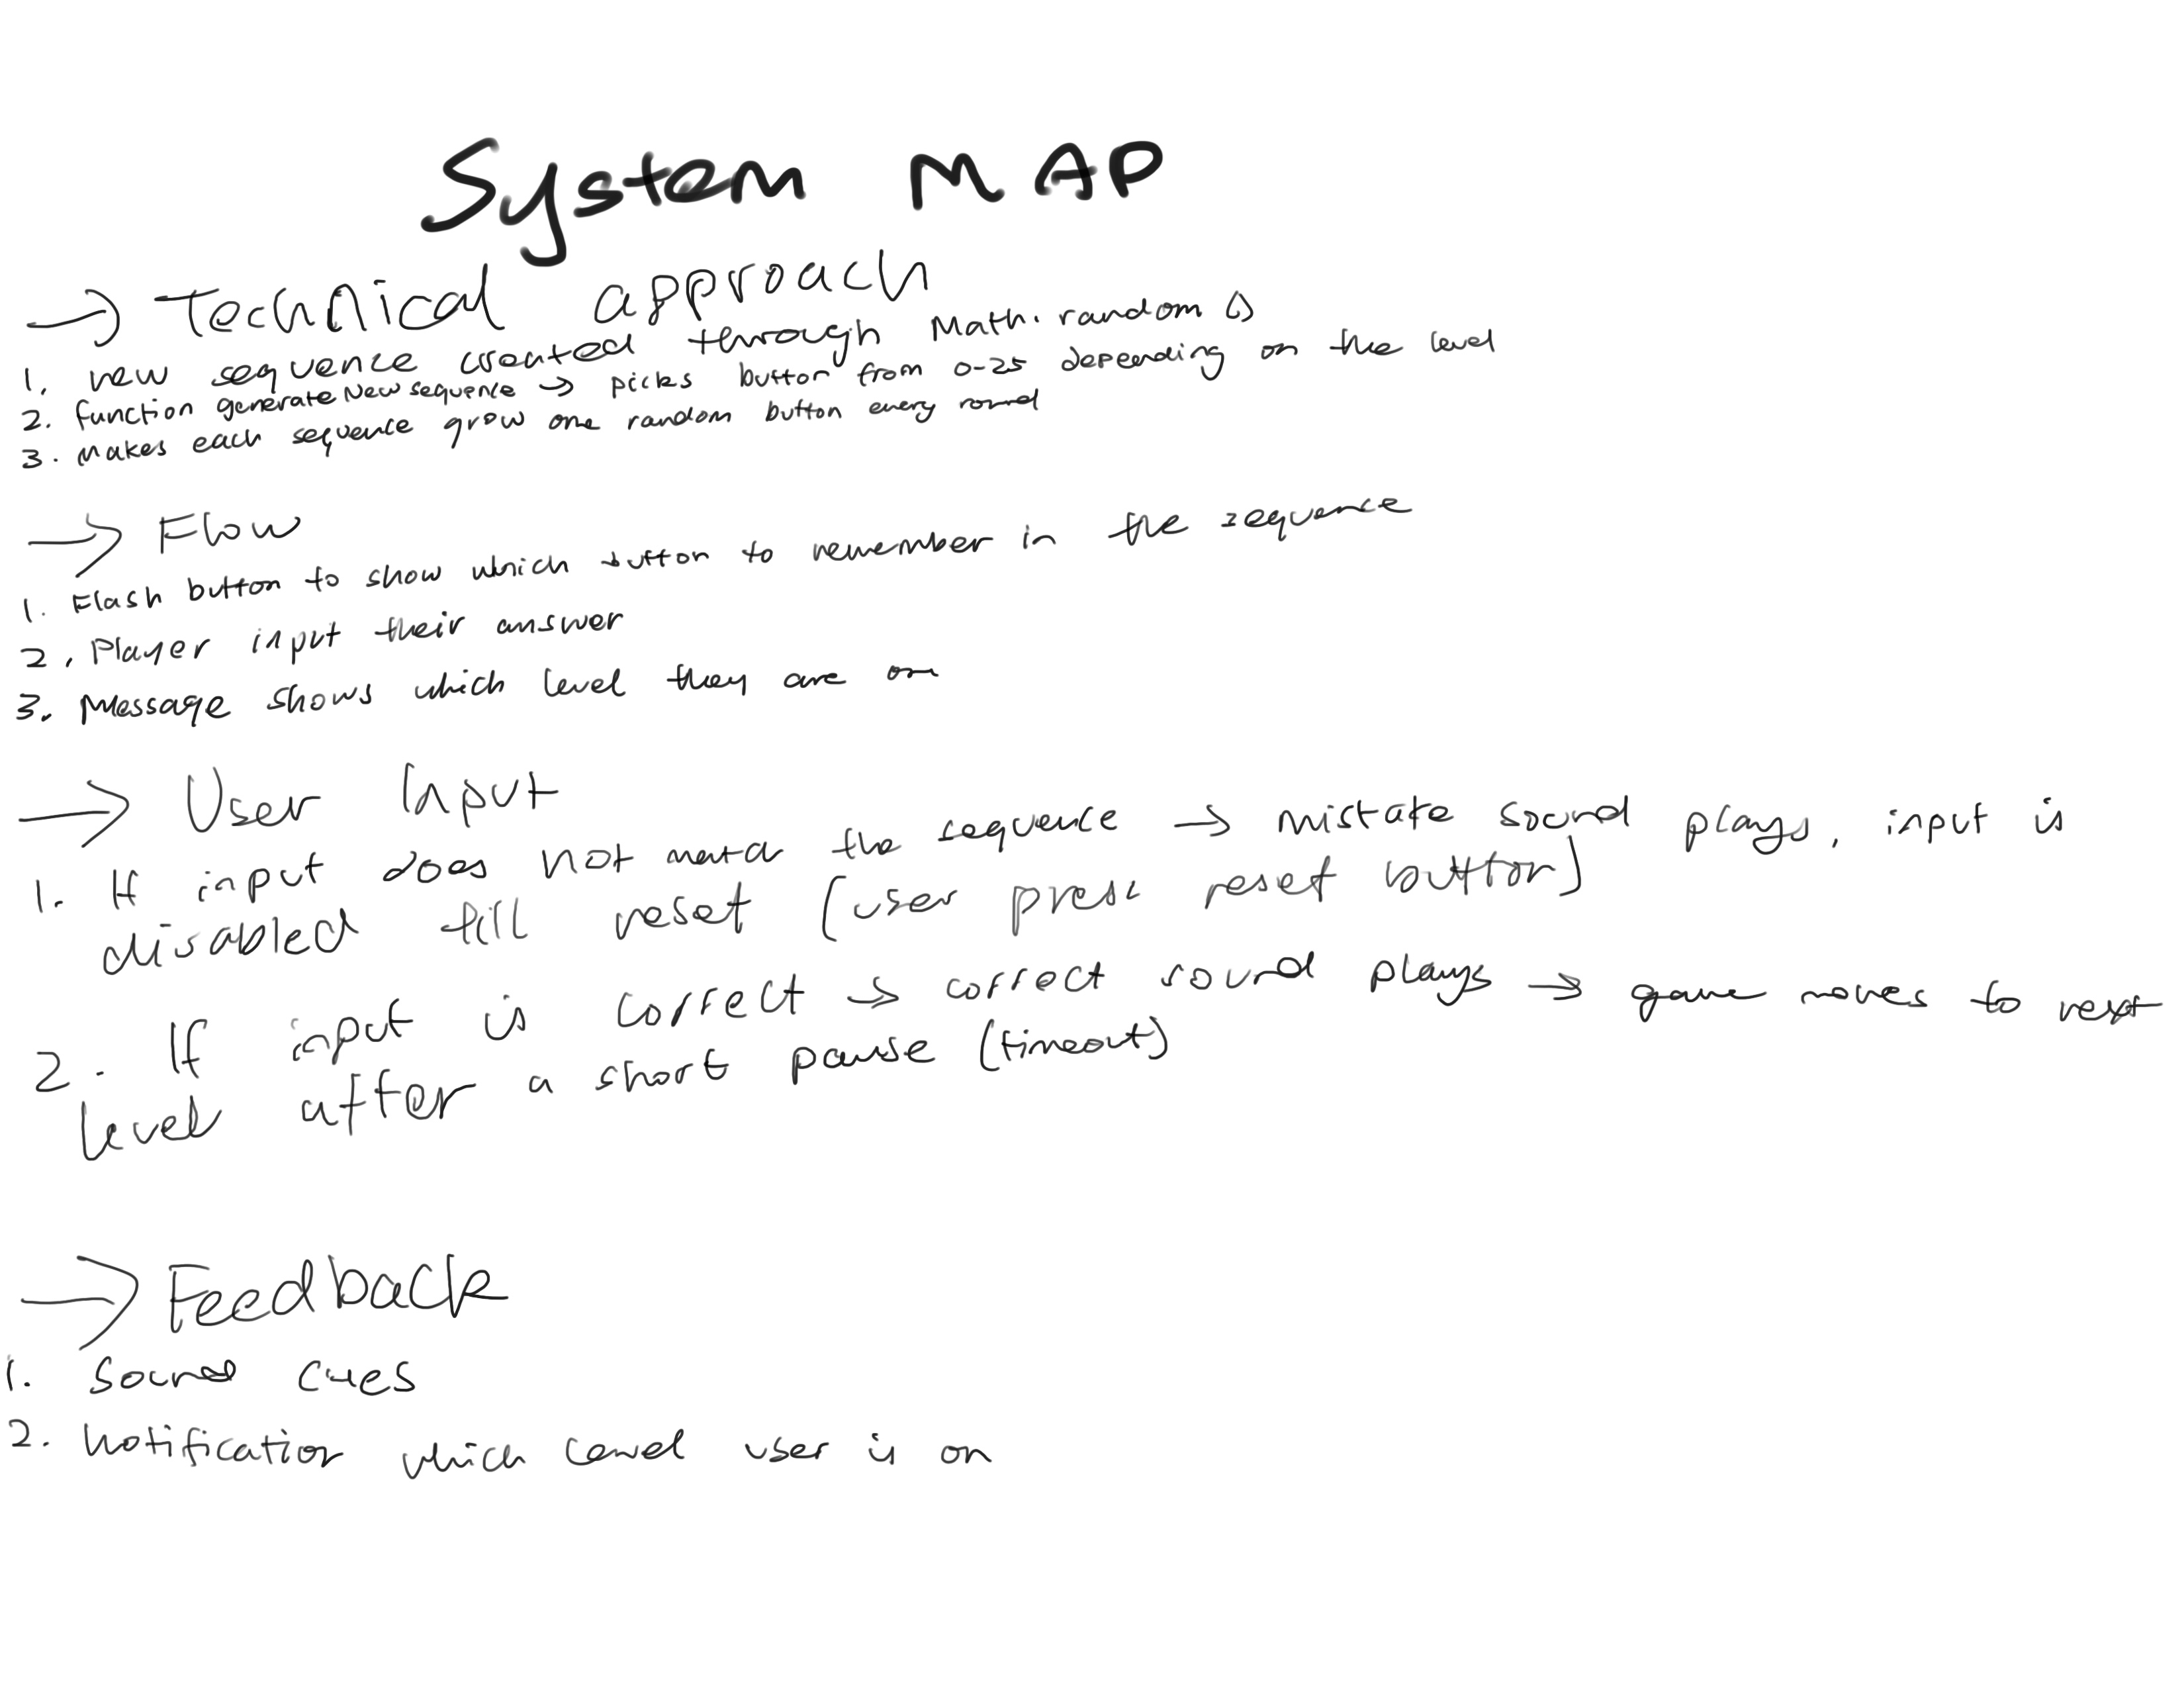 System MAP
→ Technical approach
1. new sequence created through Math.random ()
2. function generateNewsequence → picks button from 0-25 depending on the level
3. makes each sequence grow one random button every round
→ Flow
1. Flash button to show which button to remember in the sequence
2. Player input their answer
3. Message shows which level they are on
→ User Input
1. If input does not match the sequence → mistake sound plays, input is
disabled till reset (user press reset button)
2. If input is correct → correct sound plays → game moves to next
level after a short pause (timeout)
→ Feedback
1. Sound cues
2. Notification which level user is on